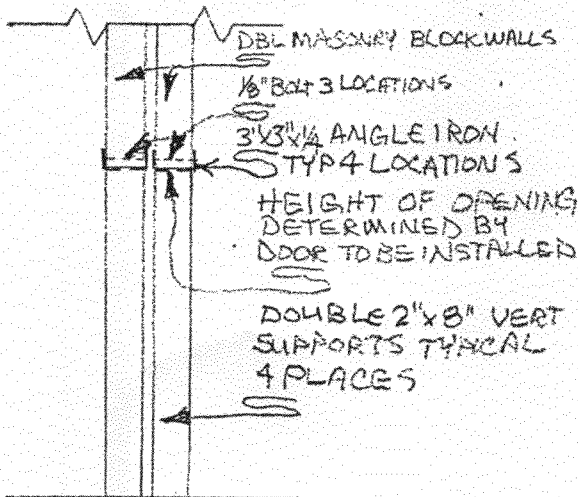 DBL MASONRY BLOCKWALLS
1/8" BOLT 3 LOCATIONS
3"x3"x1/4 ANGLE IRON
TYP 4 LOCATIONS
HEIGHT OF OPENING
DETERMINED BY
DOOR TO BE INSTALLED
DOUBLE 2"x8" VERT
SUPPORTS TYPICAL
4 PLACES